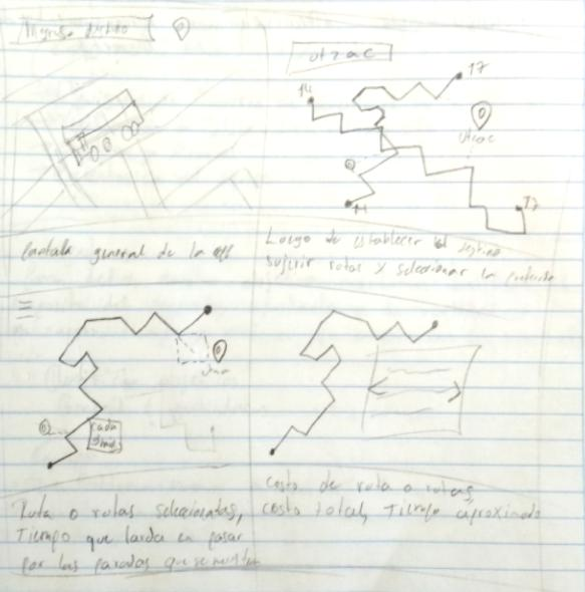 Ingrese destino
utzac
14
17
utzac
14
17
Pantalla general de la app
Luego de establecer el destino
sugerir rutas y seleccionar la preferida
cada
5 min
Ruta o rutas seleccionadas,
Tiempo que tarda en pasar
por las paradas que se muestran
Costo de ruta o rutas,
costo total, Tiempo aproximado